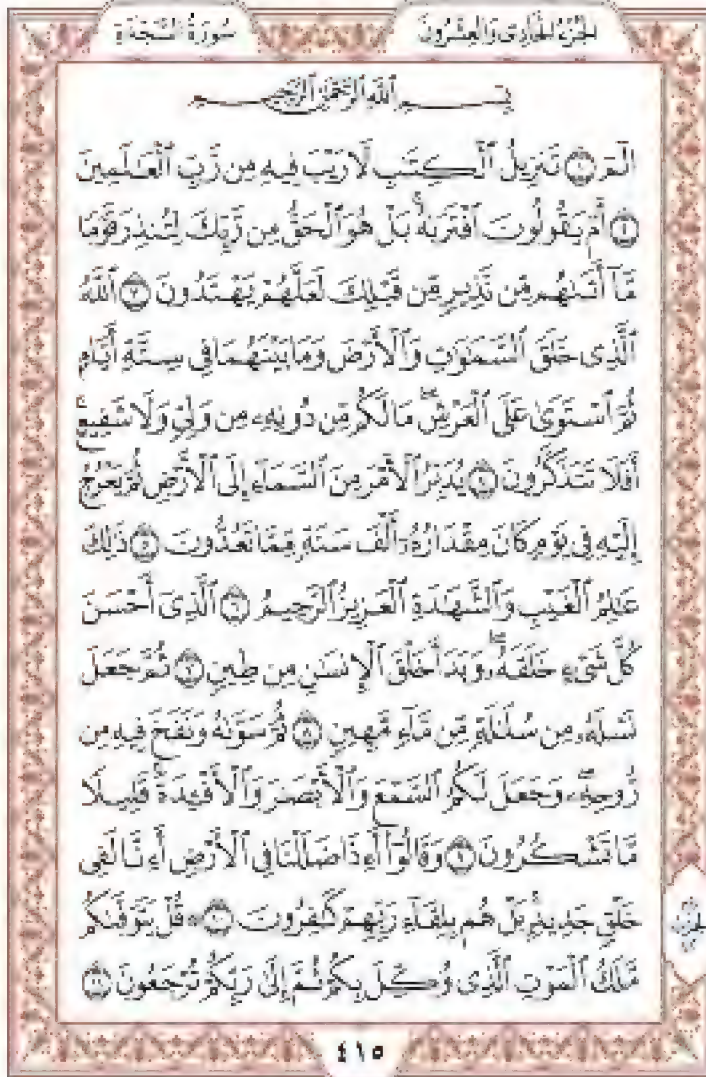 سُورَةُ السَّجْدَةِ
الجُزْءُ الحَادِى وَالعِشْرُونَ
بِسْمِ ٱللَّهِ ٱلرَّحْمَٰنِ ٱلرَّحِيمِ
الٓمٓ ١ تَنزِيلُ ٱلْكِتَٰبِ لَا رَيْبَ فِيهِ مِن رَّبِّ ٱلْعَٰلَمِينَ
٢ أَمْ يَقُولُونَ ٱفْتَرَىٰهُ ۚ بَلْ هُوَ ٱلْحَقُّ مِن رَّبِّكَ لِتُنذِرَ قَوْمًا
مَّآ أَتَىٰهُم مِّن نَّذِيرٍ مِّن قَبْلِكَ لَعَلَّهُمْ يَهْتَدُونَ ٣ ٱللَّهُ
ٱلَّذِى خَلَقَ ٱلسَّمَٰوَٰتِ وَٱلْأَرْضَ وَمَا بَيْنَهُمَا فِى سِتَّةِ أَيَّامٍ
ثُمَّ ٱسْتَوَىٰ عَلَى ٱلْعَرْشِ ۖ مَا لَكُم مِّن دُونِهِۦ مِن وَلِىٍّ وَلَا شَفِيعٍ ۚ
أَفَلَا تَتَذَكَّرُونَ ٤ يُدَبِّرُ ٱلْأَمْرَ مِنَ ٱلسَّمَآءِ إِلَى ٱلْأَرْضِ ثُمَّ يَعْرُجُ
إِلَيْهِ فِى يَوْمٍ كَانَ مِقْدَارُهُۥٓ أَلْفَ سَنَةٍ مِّمَّا تَعُدُّونَ ٥ ذَٰلِكَ
عَٰلِمُ ٱلْغَيْبِ وَٱلشَّهَٰدَةِ ٱلْعَزِيزُ ٱلرَّحِيمُ ٦ ٱلَّذِىٓ أَحْسَنَ
كُلَّ شَىْءٍ خَلَقَهُۥ ۖ وَبَدَأَ خَلْقَ ٱلْإِنسَٰنِ مِن طِينٍ ٧ ثُمَّ جَعَلَ
نَسْلَهُۥ مِن سُلَٰلَةٍ مِّن مَّآءٍ مَّهِينٍ ٨ ثُمَّ سَوَّىٰهُ وَنَفَخَ فِيهِ مِن
رُّوحِهِۦ ۖ وَجَعَلَ لَكُمُ ٱلسَّمْعَ وَٱلْأَبْصَٰرَ وَٱلْأَفْـِٔدَةَ ۚ قَلِيلًا
مَّا تَشْكُرُونَ ٩ وَقَالُوٓا۟ أَءِذَا ضَلَلْنَا فِى ٱلْأَرْضِ أَءِنَّا لَفِى
خَلْقٍ جَدِيدٍۭ ۚ بَلْ هُم بِلِقَآءِ رَبِّهِمْ كَٰفِرُونَ ١٠ ۞ قُلْ يَتَوَفَّىٰكُم
مَّلَكُ ٱلْمَوْتِ ٱلَّذِى وُكِّلَ بِكُمْ ثُمَّ إِلَىٰ رَبِّكُمْ تُرْجَعُونَ ١١
٤١٥